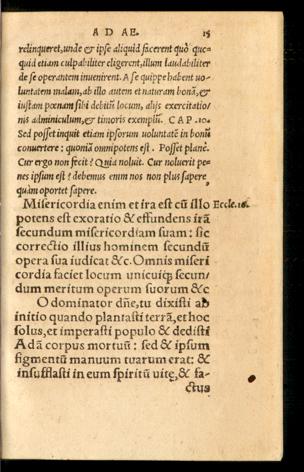 A D AE. 15
relinqueret, unde & ipse aliquid facerent quò quic=
quid etiam culpabiliter eligerent, illum laudabiliter
de se operantem invenirent. A se quippe habent uo-
luntatem malam, ab illo autem et naturam bonã, et
iustam pœnam sibi debitũ locum, alijs exercitatio/
nis adminiculum, et timoris exemplũ. C A P .10.
Sed posset inquit etiam ipsorum uoluntatẽ in bonũ
conuertere: quoniã omnipotens est. Posset planè.
Cur ergo non fecit? Quia noluit. Cur noluerit pe=
nes ipsum est? debemus enim nos non plus sapere
quàm oportet sapere.
Misericordia enim et ira est cũ illo Eccle.16.
potens est exoratio & effundens irã
secundum misericordiam suam: sic
correctio illius hominem secundũ
opera sua iudicat &c. Omnis miseri
cordia faciet locum unicuiq; secun/
dum meritum operum suorum &c
O dominator dñe, tu dixisti ab
initio quando plantasti terrã, et hoc
solus, et imperasti populo & dedisti
Adã corpus mortuũ: sed & ipsum
figmentũ manuum tuarum erat: &
insufflasti in eum spiritũ uitę, & fa-
ctus